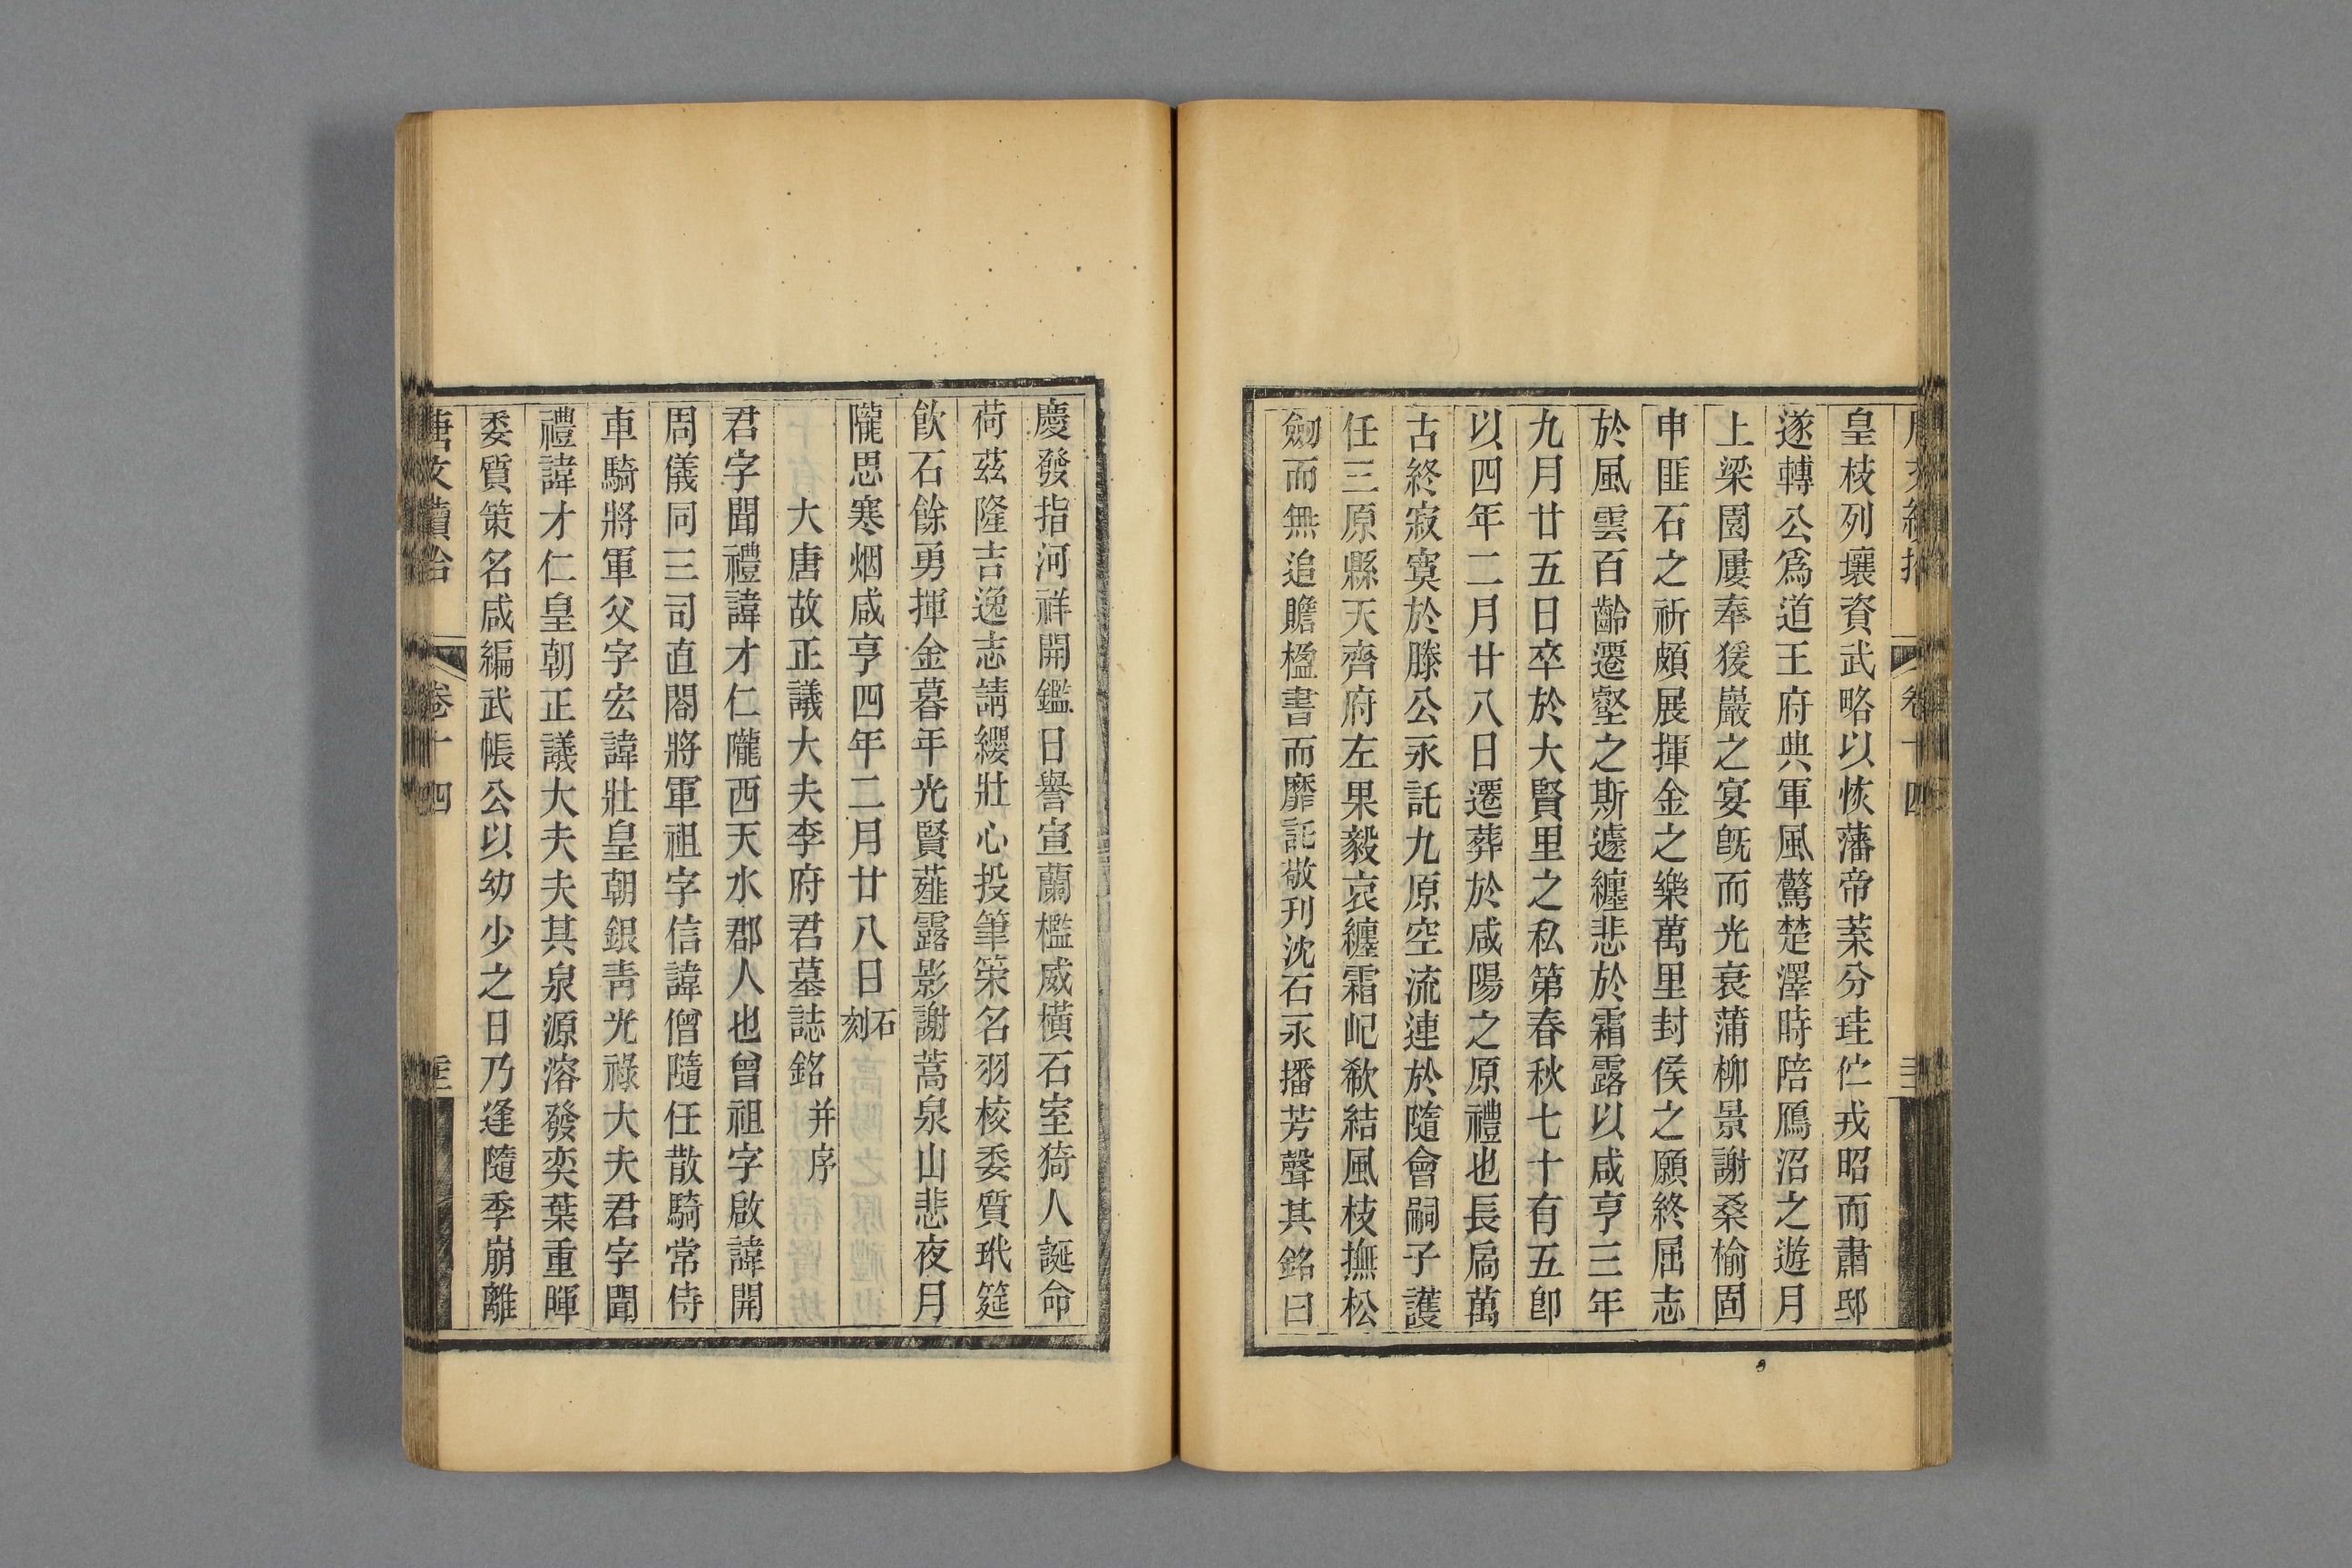 皇枝列壤資武略以恢藩帝葉分珪伫戎昭而肅邸
遂轉公爲道王府典軍風驚楚澤時陪鴈沼之遊月
上梁園屢奉猨巖之宴旣而光衰蒲柳景謝桑榆固
申匪石之祈頗展揮金之樂萬里封侯之願終屈志
於風雲百齡遷壑之斯遽纏悲於霜露以咸亨三年
九月廿五日卒於大賢里之私第春秋七十有五卽
以四年二月廿八日遷葬於咸陽之原禮也長扃萬
古終寂寞於滕公永託九原空流連於隨會嗣子護
任三原縣天齊府左果毅哀纏霜屺欷結風枝撫松
劒而無追瞻楹書而靡託敬刊沈石永播芳聲其銘曰
慶發指河祥開鑑日譽宣蘭檻威橫石室猗人誕命
荷茲隆吉逸志請纓壯心投筆策名羽校委質玳筵
飮石餘勇揮金暮年光賢薤露影謝蒿泉山悲夜月
隴思寒烟咸亨四年二月廿八日石刻
大唐故正議大夫李府君墓誌銘并序
君字聞禮諱才仁隴西天水郡人也曾祖字啟諱開
周儀同三司直閤將軍祖字信諱僧隨任散騎常侍
車騎將軍父字宏諱壯皇朝銀靑光祿大夫君字聞
禮諱才仁皇朝正議大夫夫其泉源溶發奕葉重暉
委質策名咸編武帳公以幼少之日乃逢隨季崩離
唐文續拾 卷十四